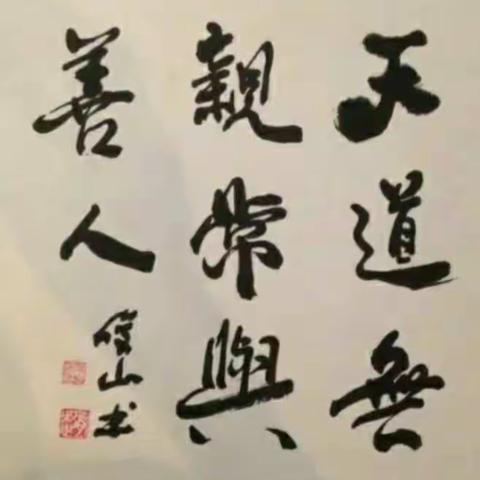 天道無
親常與
善人
山书